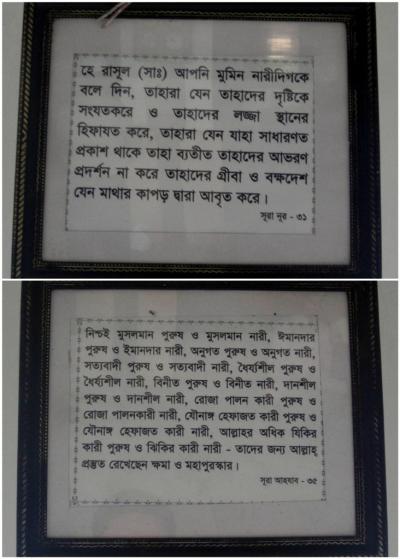 হে রাসুল (সাঃ) আপনি মুমিন নারীদিগকে
বলে দিন, তাহারা যেন তাহাদের দৃষ্টিকে
সংযতকরে ও তাহাদের লজ্জা স্থানের
হিফাযত করে, তাহারা যেন যাহা সাধারণত
প্রকাশ থাকে তাহা ব্যতীত তাহাদের আভরণ
প্রদর্শন না করে তাহাদের গ্রীবা ও বক্ষদেশ
যেন মাথার কাপড় দ্বারা আবৃত করে।
সূরা নূর - ৩১
নিশ্চই মুসলমান পুরুষ ও মুসলমান নারী, ঈমানদার
পুরুষ ও ইমানদার নারী, অনুগত পুরুষ ও অনুগত নারী,
সত্যবাদী পুরুষ ও সত্যবাদী নারী, ধৈর্য্যশীল পুরুষ ও
ধৈর্য্যশীল নারী, বিনীত পুরুষ ও বিনীত নারী, দানশীল
পুরুষ ও দানশীল নারী, রোজা পালন কারী পুরুষ ও
রোজা পালনকারী নারী, যৌনাঙ্গ হেফাজত কারী পুরুষ ও
যৌনাঙ্গ হেফাজত কারী নারী, আল্লাহর অধিক যিকির
কারী পুরুষ ও ঝিকির কারী নারী - তাদের জন্য আল্লাহ্
প্রস্তুত রেখেছেন ক্ষমা ও মহাপুরস্কার।
সূরা আহযাব - ৩৫